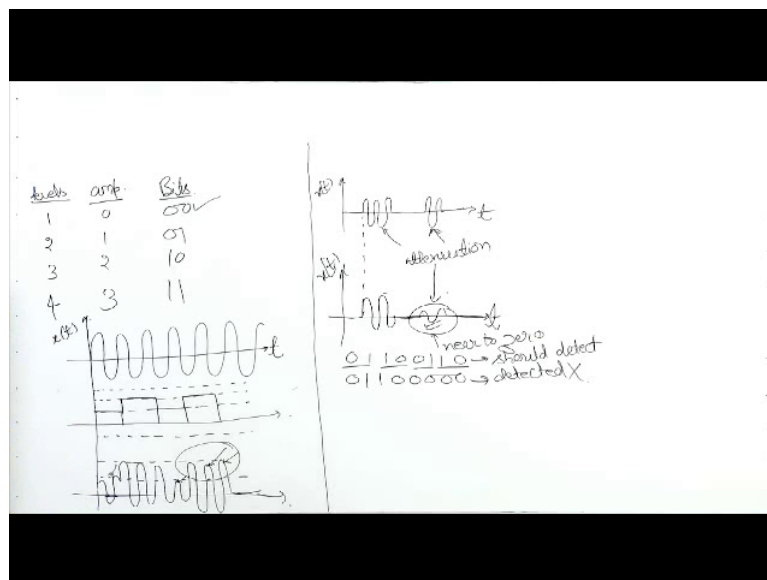 levels amp. Bits
1 0 00
2 1 01
3 2 10
4 3 11
x(t)
t
t
attenuation
t
near to zero
01100110 → should detect
01100000 → detected X